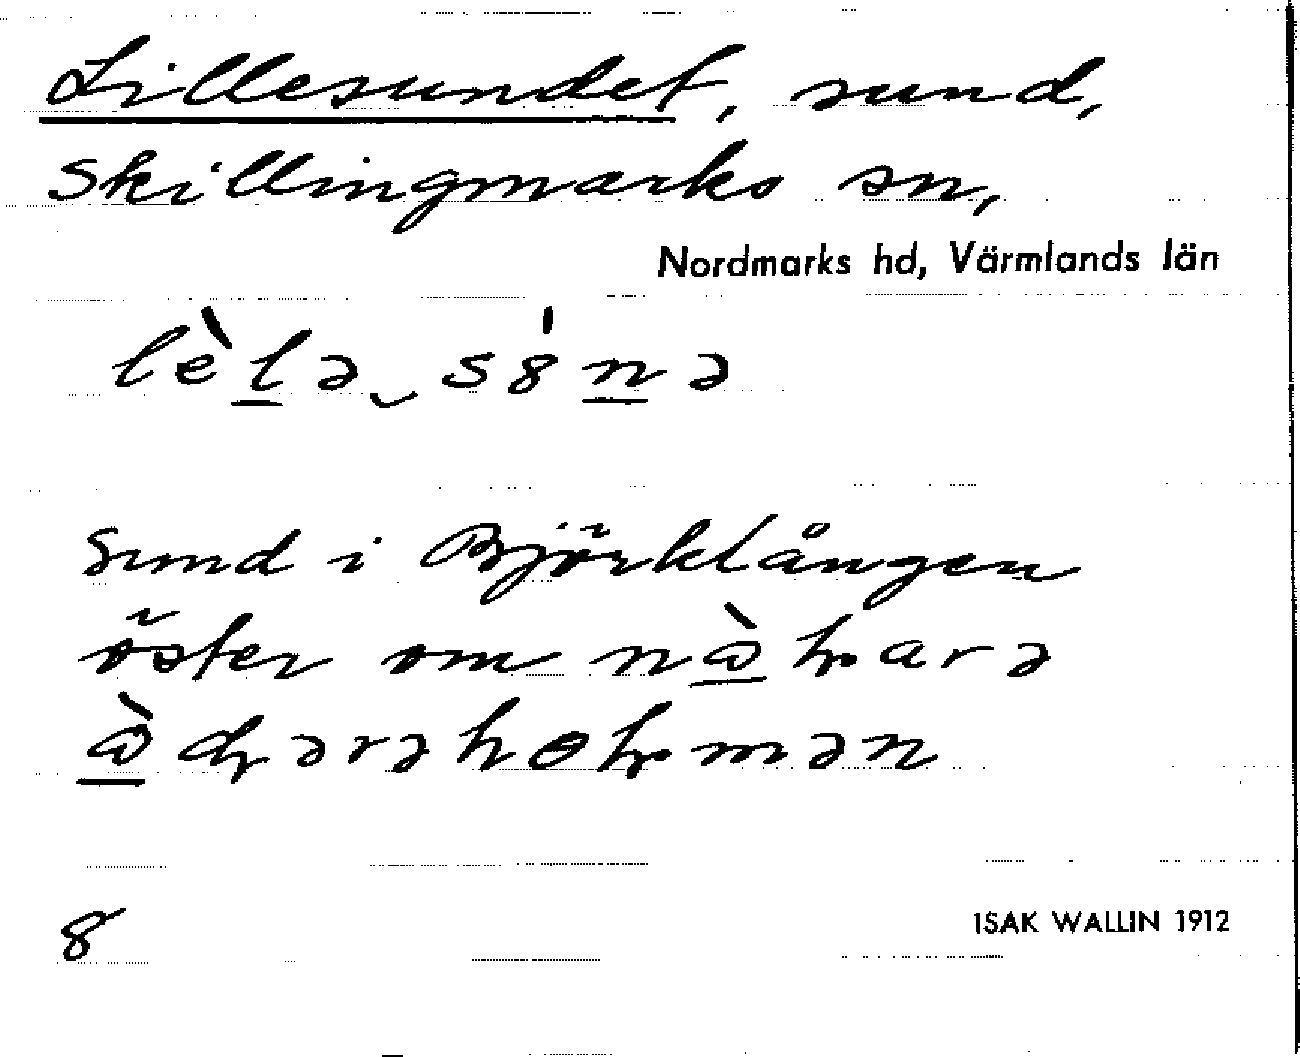 Lillesundet, sund,
Skillingmarks sn,
Nordmarks hd, Värmlands län
lèlə‿sȯ́nə
Sund i Björklången
öster om
8
ISAK WALLIN 1912